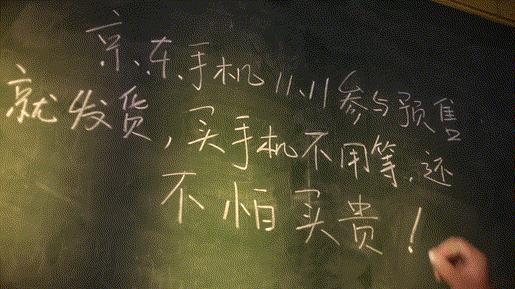 京东手机11.11参与预售
就发货,买手机不用等,还
不怕买贵!